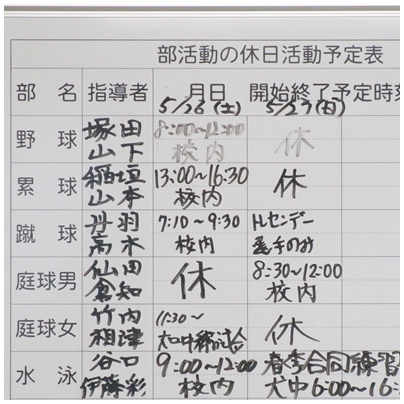 部活動の休日活動予定表
部 名 指導者 月日 開始終了予定時刻
5/26(土) 5/27(日)
野 球 塚田 8:00~12:00 休
山下 校内
累 球 稲垣 13:00~16:30 休
山本 校内
蹴 球 丹羽 7:10~9:30 トレセンデー
高木 校内 選手のみ
庭球男 仙田 休 8:30~12:00
倉知 校内
庭球女 竹内 11:30~ 休
相津
水 泳 谷口 9:00~12:00 春季合同練習
伊藤彩 校内 犬中 6:00~16: